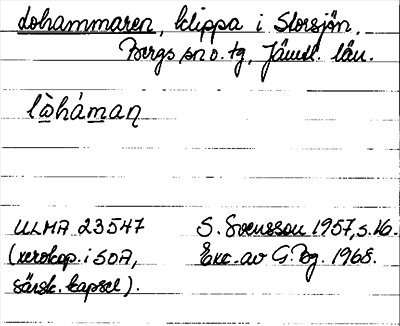 Lohammaren, klippa i Storsjön.
Bergs sn o. tg, Jämtl. län.
lὼhȧman̨
ULMA 23547 S. Svensson 1957, s. 16.
(xerokop. i SOA, Exc. av G. Bg. 1968.
särsk. kapsel).